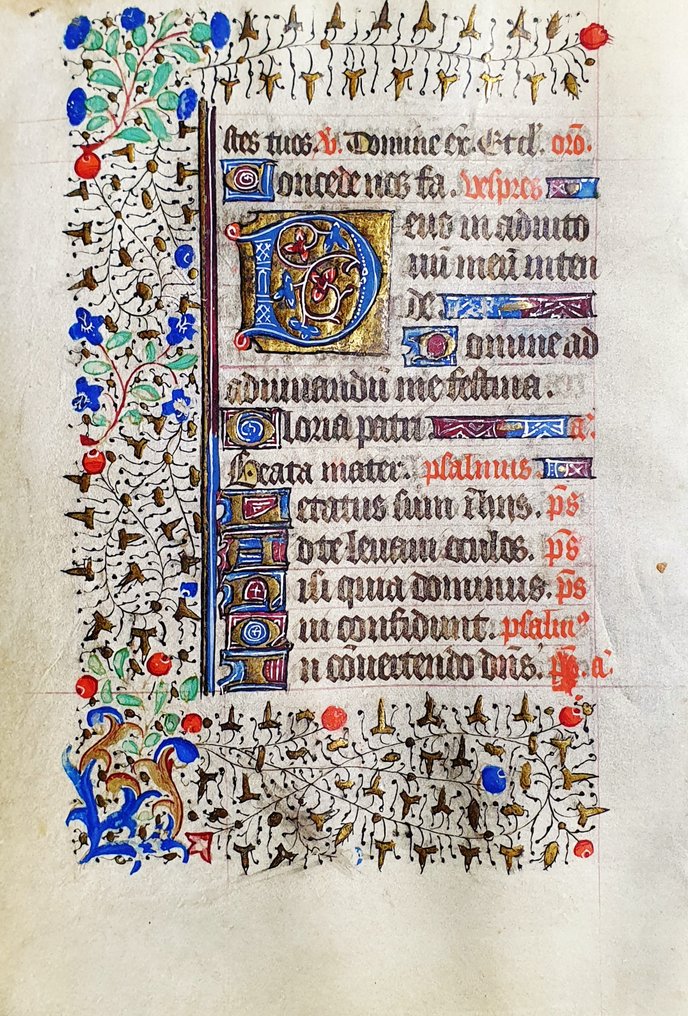 stes tuos. V. Domine ex. Et cl. orõ.
Concede nos fa. Vespres
Deus in adiuto
riũ meũ inten
de
Domine ad
adiuuandũ me festina.
Gloria patri a.
Beata mater. psalmus.
Letatus sum ĩ hijs. p̃s
Ad te leuaui oculos. p̃s
Nisi quia dominus. p̃s
Qui confidunt. psalm⁹
In cõuertendo dñs. p̃s. a.